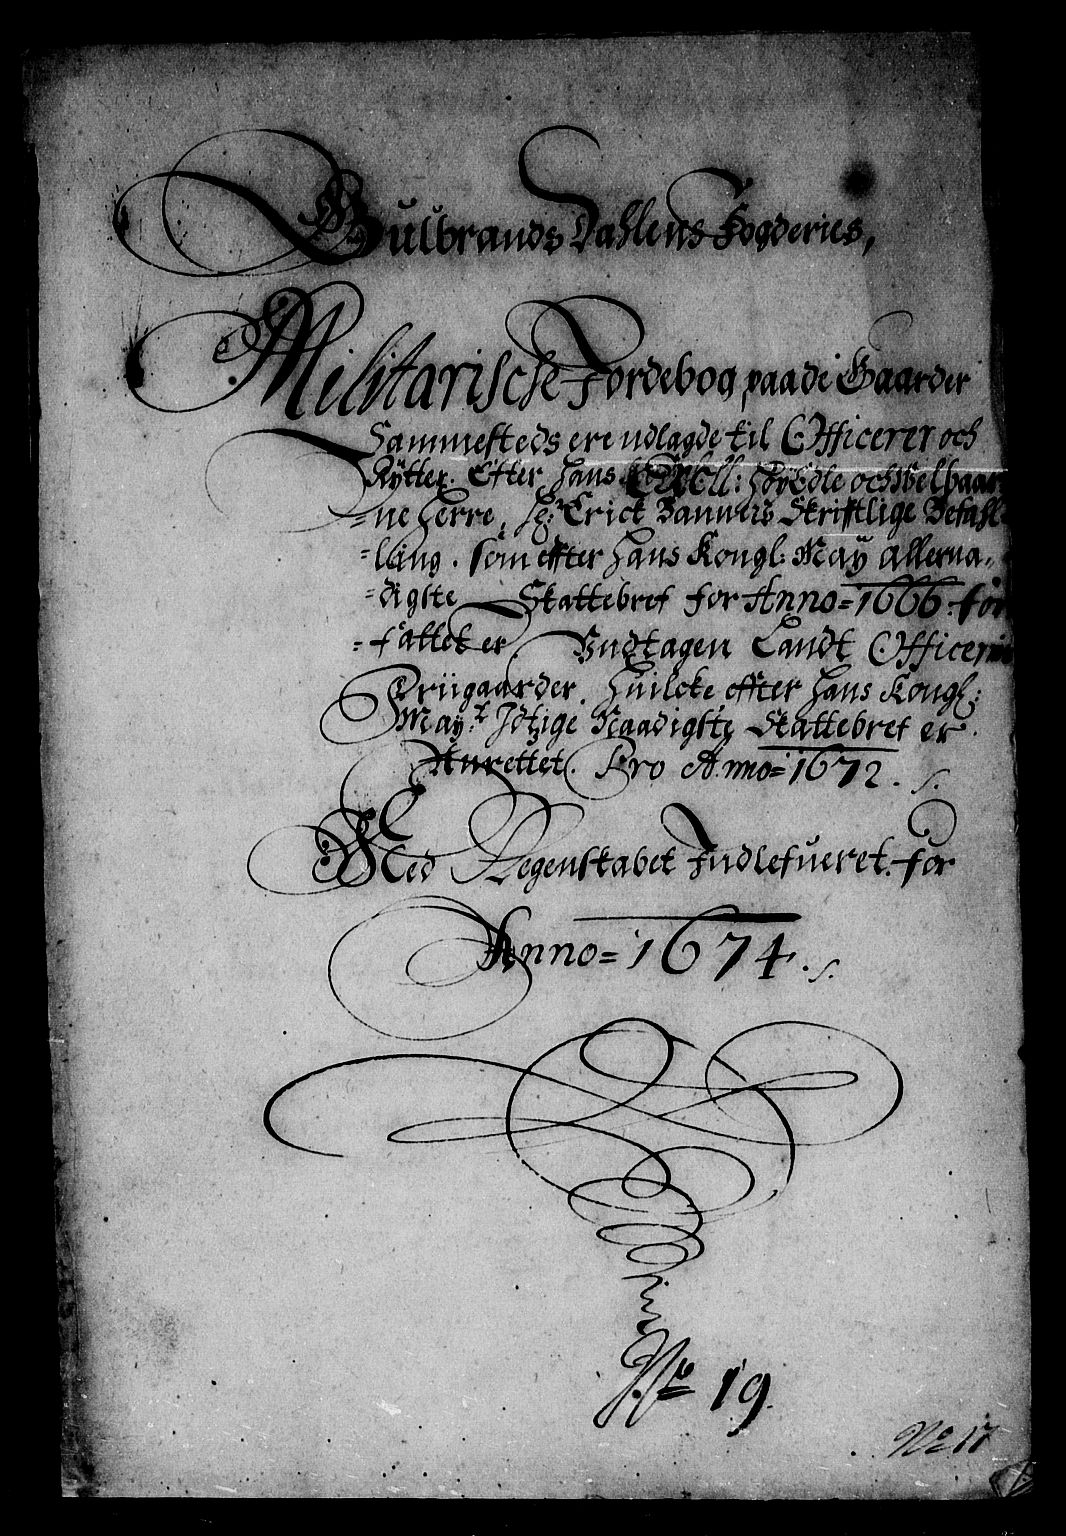 Gulbrands Dahlens Fogderies,
Militarische Jordebog, paa de Gaarder
Sammesteds ere udlagde til Officerer och
Rytter. Efter hans Høyædle och Velbaar
=ne Herre, Hr: Erick Banners Skriftlige Befahl
=ling. som effter hans Kongl: May allerna=
=digste Skattebref for Anno=1666. for
=fattet er Undtagen Landt Officerer
Friigaarder, huilcke effter hans Kongl:
May.t Jdtzige Naadigste Skattebref er
Anrettet. Pro Anno=1672. s.
Med Regenskabet Indlefueret. for
Anno=1674. s.
No 19.
No 17